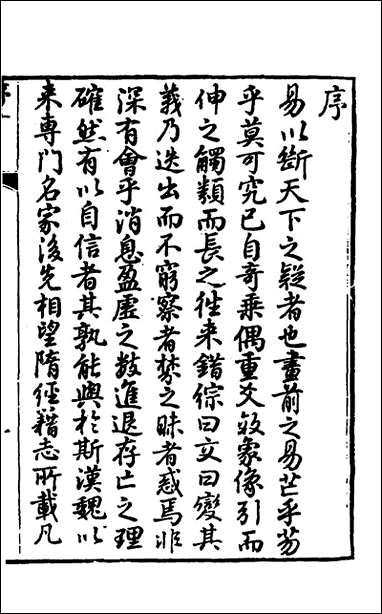 序
易以斷天下之疑者也畫前之易芒乎芴
乎莫可究已自奇乗偶重爻效象像引而
伸之觸類而長之徃来錯綜曰文曰變其
義乃迭出而不窮察者禁之昧者惑焉非
深有會乎消息盈虛之数進退存亡之理
確然有以自信者其孰能與於斯漢魏以
来専門名家後先相望隋經籍志所載凡
序